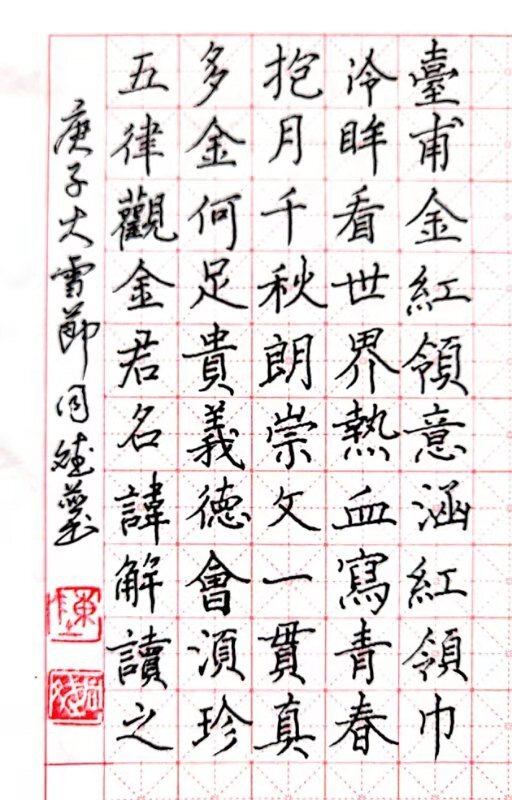 臺甫金紅領意涵紅領巾
冷眸看世界熱血寫青春
抱月千秋朗崇文一貫真
多金何足貴義德會須珍
五律觀金君名諱解讀之
庚子大雪節同斌